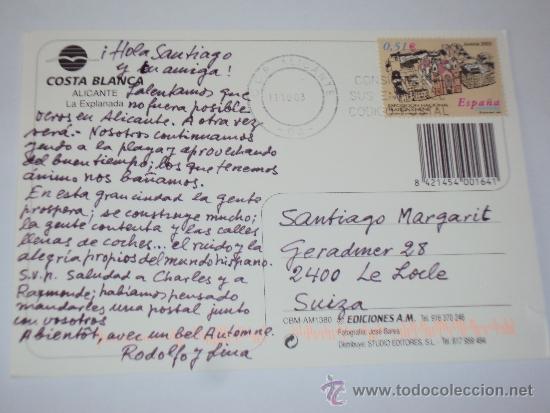 ¡Hola Santiago
y tu amiga!
COSTA BLANCA
ALICANTE
La Explanada
Lamentamos que
no fuera posible
veros en Alicante. A otra vez
será.- Nosotros continuamos
yendo a la playa y aprovechando
del buen tiempo; los que tenemos
ánimo nos bañamos.
En esta gran ciudad la gente
prospera; se construye mucho;
la gente contenta y las calles
llenas de coches... el ruido y la
alegría propios del mundo hispano.
S.v.p. Saludad a Charles y a
Raymonde; habíamos pensado
mandarles una postal junto
con vosotros
A bientôt, avec un bel Automne.
Rodolfo y Lina
0,51 €
España
ALICANTE
11 10 03
CODIGO POSTAL
8 421454 001641
Santiago Margarit
Geradmer 28
2400 Le Locle
Suiza
CBM-AM1380
EDICIONES A.M. Tel. 916 370 246
Fotografía: José Barea
Distribuye: STUDIO EDITORES, S.L. - Tel. 917 959 494
www.todocoleccion.net